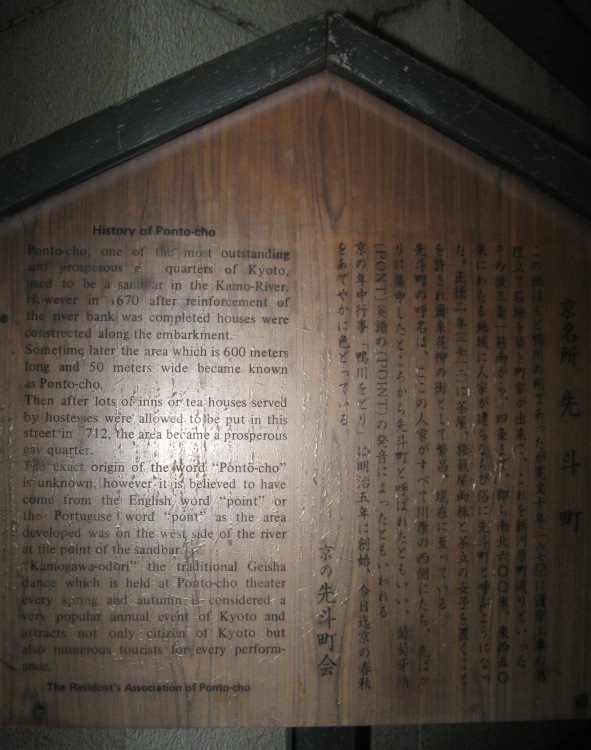 History of Ponto-cho
Ponto-cho, one of the most outstanding
and prosperous g quarters of Kyoto,
used to be a sandbar in the Kamo-River.
However in 1670 after reinforcement of
the river bank was completed houses were
constrected along the embarkment.
Sometime later the area which is 600 meters
long and 50 meters wide became known
as Ponto-cho.
Then after lots of inns or tea houses served
by hostesses were allowed to be put in this
street in 712, the area became a prosperous
gay quarter.
The exact origin of the word "Ponto-cho"
is unknown, however it is believed to have
come from the English word "point" or
the Portuguse word "pont" as the area
developed was on the west side of the river
at the point of the sandbar.
"Kamogawa-odori" the traditional Geisha
dance which is held at Ponto-cho theater
every spring and autumn is considered a
very popular annual event of Kyoto and
attracts not only citizen of Kyoto but
also numerous tourists for every perform-
ance.
The Resident's Association of Ponto-cho
京名所 先斗町
この地はもと鴨川の州であったが寛文十年(一六七〇)に護岸工事の為
埋立て石垣を築き町家が出来て、これを新河原町通りといった
その後三条一筋南から、四条まで、即ち南北六〇〇米、東西五〇
米にわたる地域に人家が建ちならび俗に先斗町と呼ぶようになっ
た。正徳二年(一七一二)に茶屋、旅籠屋両株と茶立の女子を置くこと
を許され爾来花柳の街として繁昌、現在に至っている。
先斗町の呼名は、ここの人家がすべて川原の西側にたち、先ばか
りに集中したところから先斗町と呼ばれたともいい、葡萄牙語
(PONT)英語の(POINT)の発音によったともいわれる。
京の年中行事「鴨川をどり」は明治五年に創始、今日迄京の春秋
をあでやかに色どっている。
京の先斗町会